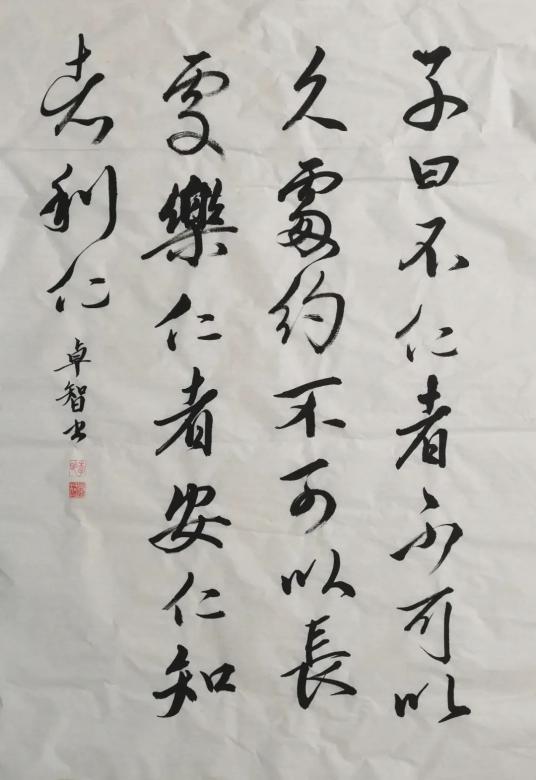 子曰不仁者不可以
久處約不可以長
處樂仁者安仁知
者利仁
卓智书